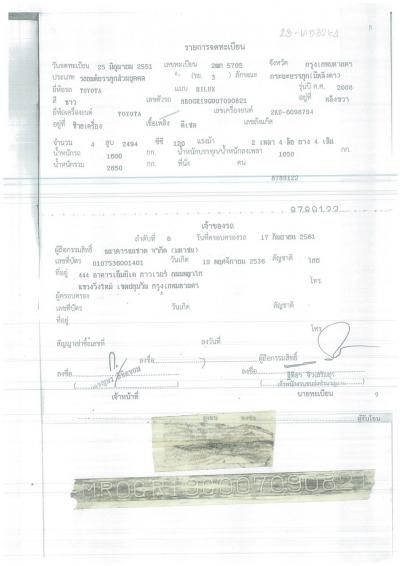 8
23-นข3084
รายการจดทะเบียน
วันจดทะเบียน 25 มิถุนายน 2551 เลขทะเบียน 2ฒก 5705 จังหวัด กรุงเทพมหานคร
ประเภท รถยนต์บรรทุกส่วนบุคคล (รย. 3 ) ลักษณะ กระบะบรรทุก
ยี่ห้อรถ TOYOTA แบบ HILUX รุ่นปี ค.ศ. 2008
สี ขาว เลขตัวรถ MR0GR19G007090821 อยู่ที่ คลัสขวา
ยี่ห้อเครื่องยนต์ TOYOTA เลขเครื่องยนต์ 2KD-6098794
อยู่ที่ ซ้ายเครื่อง เชื้อเพลิง ดีเซล เลขถังแก๊ส
จำนวน 4 สูบ 2494 ซีซี 120 แรงม้า 2 เพลา 4 ล้อ ยาง 4 เส้น
น้ำหนักรถ 1600 กก. น้ำหนักบรรทุก/น้ำหนักลงเพลา 1050 กก.
น้ำหนักรวม 2650 กก. ที่นั่ง คน
8789122
8789122
เจ้าของรถ
ลำดับที่ 6 วันที่ครอบครองรถ 17 กันยายน 2561
ผู้ถือกรรมสิทธิ์ ธนาคารธนชาต จำกัด (มหาชน)
เลขที่บัตร 0107536001401 วันเกิด 19 พฤศจิกายน 2536 สัญชาติ ไทย
ที่อยู่ 444 อาคารเอ็มบีเค ทาวเวอร์ ถนนพญาไท
แขวงวังใหม่ เขตปทุมวัน กรุงเทพมหานคร โทร.
ผู้ครอบครอง
เลขที่บัตร วันเกิด สัญชาติ
ที่อยู่
โทร
สัญญาเช่าซื้อเลขที่ ลงวันที่
ลงชื่อ ผู้ถือกรรมสิทธิ์
ลงชื่อ ลงชื่อ
เจ้าหน้าที่ นายทะเบียน
9
ผู้รับโอน
MR0GR19G007090821